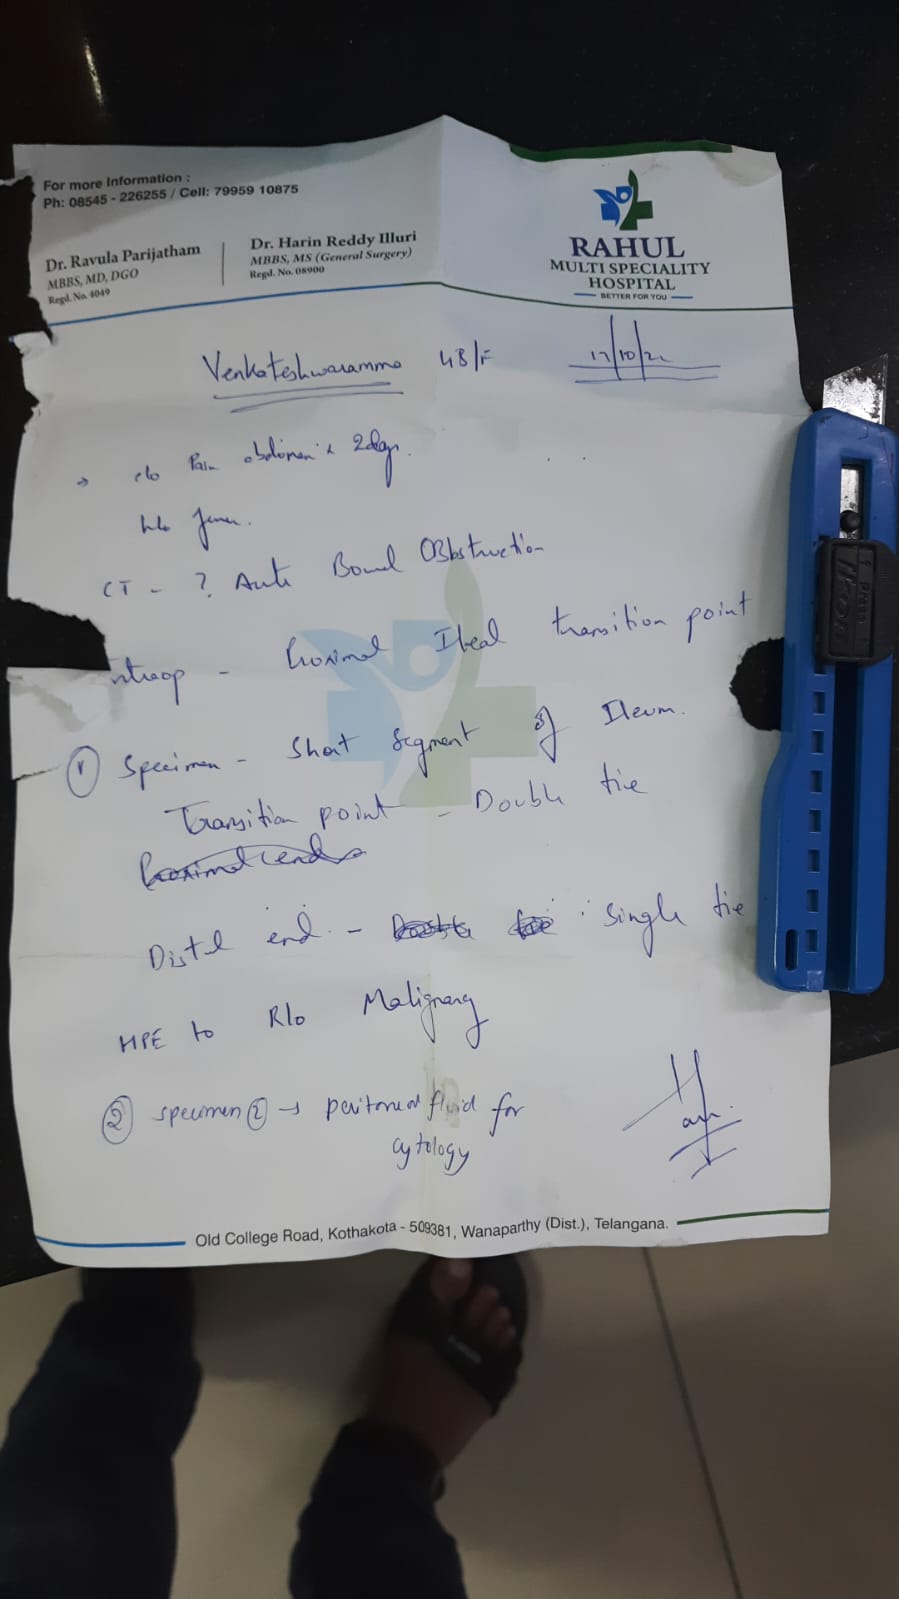 For more Information :
Ph: 08545 - 226255 / Cell: 79959 10875
Dr. Ravula Parijatham
MBBS, MD, DGO
Regd. No. 4049
Dr. Harin Reddy Illuri
MBBS, MS (General Surgery)
Regd. No. 08900
RAHUL
MULTI SPECIALITY
HOSPITAL
BETTER FOR YOU
Venkateshwaramma 48/F
17/10/22
→ c/o Pain abdomen x 2days.
h/o fever.
CT - ? Acute Bowel Obbstruction
ntraop - Proximal Ileal transition point
① Specimen - Short segment of Ileum.
Transition point - Double tie
Proximal end
Distal end - single tie
HPE to R/o Malignancy
② specimen ② → peritoneal fluid for
cytology
Old College Road, Kothakota - 509381, Wanaparthy (Dist.), Telangana.